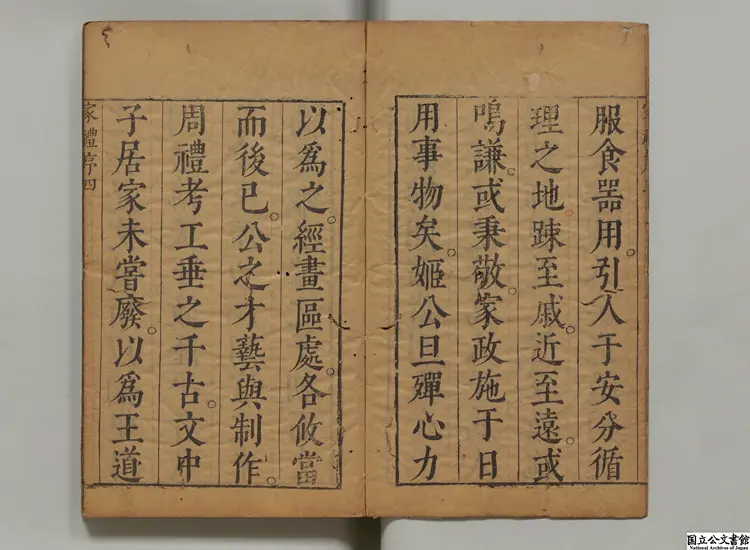 服食器用。引入于安分循
理之地踈至戚。近至遠。或
鳴謙。或秉敬。家政施于日
用事物矣。姬公旦殫心力
以爲之。經畫區處。各攸當
而後已。公之才藝與制作。
周禮考工垂之千古。文中
子居家未嘗廢。以爲王道
家禮序 四
国立公文書館
National Archives of Japan